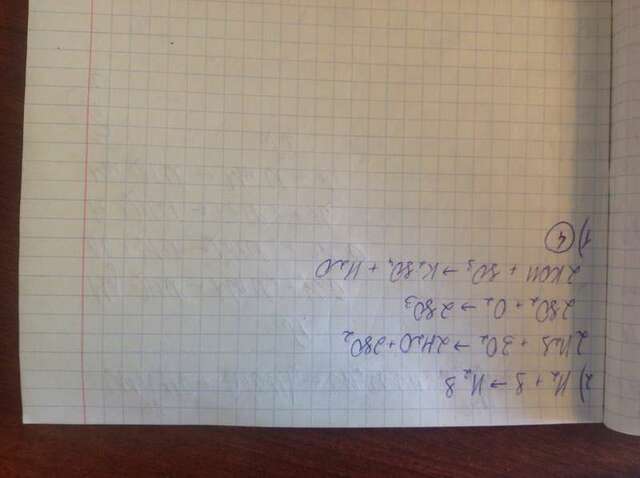 2) H₂ + S → H₂S
2H₂S + 3O₂ → 2H₂O + 2SO₂
2SO₂ + O₂ → 2SO₃
2KOH + SO₃ → K₂SO₄ + H₂O
1) 4